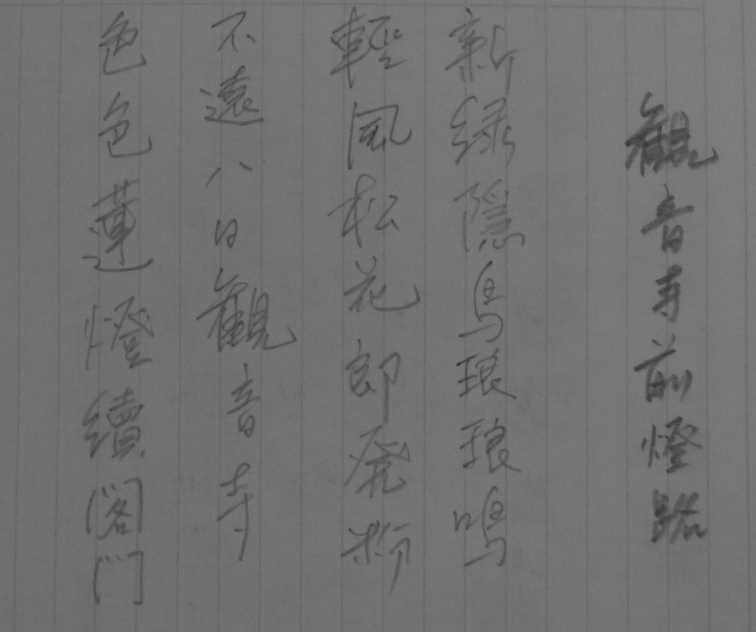 觀音寺前燈路
新緑隱鳥琅琅鳴
輕風松花郎發粉
不遠八日觀音寺
色色蓮燈續閣門